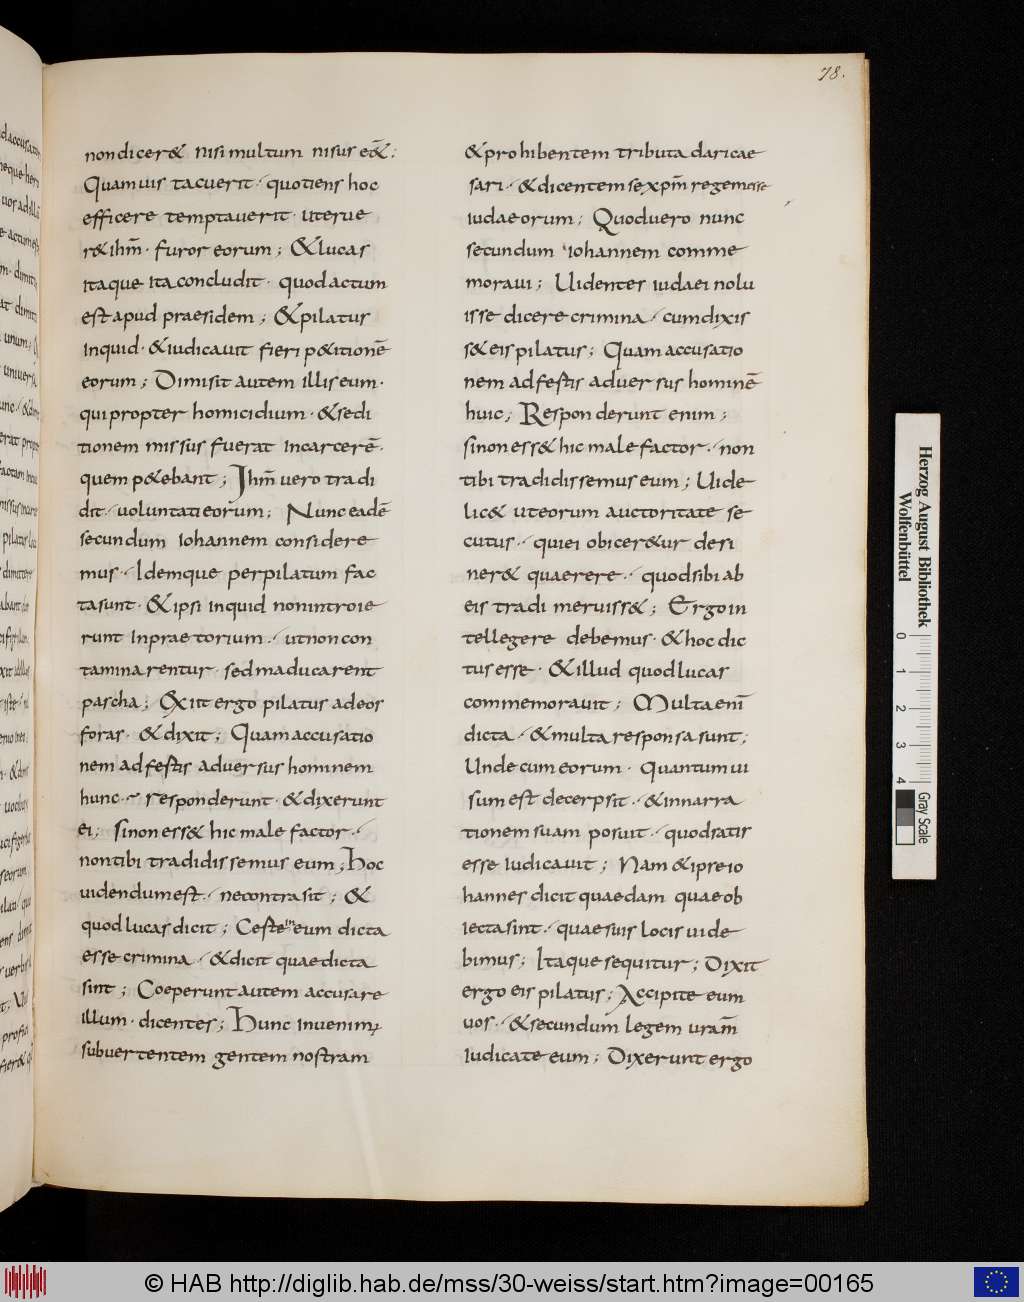 78.
non dicer& nisi multum nisus e&̄:
Quamuis tacuerit· quotiens hoc
efficere temptauerit· uterue
r& ihm̄· furor eorum; & lucas
itaque ita concludit· quod actum
est apud praesidem; & pilatus
inquid· & iudicauit fieri p&itionē
eorum; Dimisit autem illis eum·
qui propter homicidium· & sedi
tionem missus fuerat in carcerē·
quem p&ebant; Ihm̄ uero tradi
dit· uoluntati eorum; Nunc eadē
secundum iohannem considere
mus· Idemque per pilatum fac
ta sunt· & ipsi inquid non introie
runt in praetorium· ut non con
taminarentur· sed maducarent
pascha; Exiit ergo pilatus ad eos
foras· & dixit; Quam accusatio
nem ad festis aduersus hominem
hunc· responderunt· & dixerunt
ei; si non ess& hic male factor·
non tibi tradidissemus eum; Hoc
uidendum est· ne contra sit; &
quod lucas dicit; Ceste in eum dicta
esse crimina· & dicit quae dicta
sint; Coeperunt autem accusare
illum· dicentes; Hunc inuenim;
subuertentem gentem nostram
& prohibentem tributa dari cae
sari· & dicentem se xpm̄ regem esse
iudaeorum; Quod uero nunc
secundum iohannem comme
moraui; Uidentes iudaei nolu
isse dicere crimina· cum dixis
s& eis pilatus; Quam accusatio
nem ad festis aduersus hominē
huic; Responderunt enim;
si non ess& hic male factor· non
tibi tradidissemus eum; Uide
lic& ut eorum auctoritate se
cutus· qui ei obicer&ur desi
ner& quaerere· quod sibi ab
eis tradi meruiss&; Ergo in
tellegere debemus· & hoc dic
tus esse· & illud quod lucas
commemorauit; Multa enī
dicta· & multa responsa sunt;
Unde cum eorum· Quantum ui
sum est decerpsit· & in narra
tionem suam posuit· quod satis
esse iudicauit; Nam & ipse io
hannes dicit quaedam quae ob
iecta sint· quae suis locis uide
bimus; Itaque sequitur; Dixit
ergo eis pilatus; Accipite eum
uos· & secundum legem uram̄
iudicate eum; Dixerunt ergo
Herzog August Bibliothek
Wolfenbüttel
0 1 2 3 4
Gray Scale
© HAB http://diglib.hab.de/mss/30-weiss/start.htm?image=00165